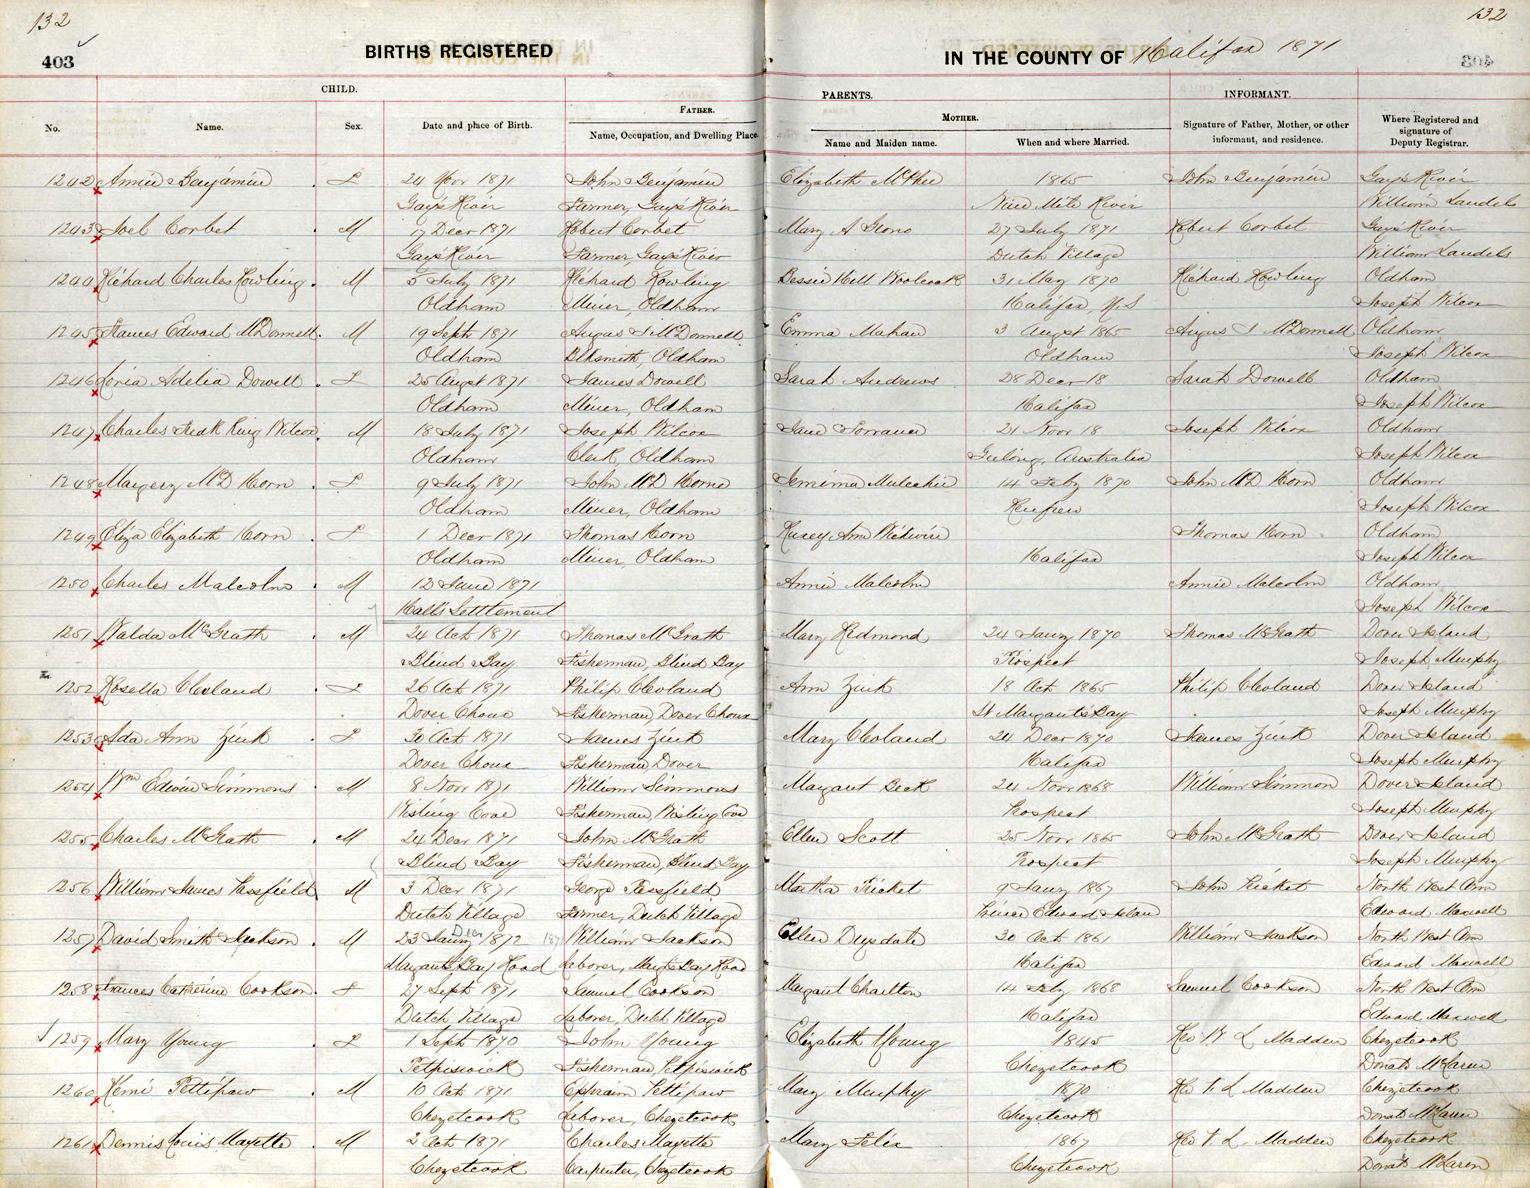 132
132
403
BIRTHS REGISTERED
IN THE COUNTY OF Halifax 1871
CHILD.
PARENTS.
INFORMANT.
No.
Name.
Sex.
Date and place of Birth.
FATHER.
Name, Occupation, and Dwelling Place.
MOTHER.
Name and Maiden name.
When and where Married.
Signature of Father, Mother, or other informant, and residence.
Where Registered and signature of Deputy Registrar.
1242 Annie Benjamin F 24 Nov 1871 John Benjamin Elizabeth 1865 John Benjamin Gay's River
Gay's River Farmer, Gay's River Nine Mile River William Landels
1243 Joel Corbet M 17 Decr 1871 Robert Corbet Mary A Grono 27 July 1871 Robert Corbet Gay's River
Gay's River Farmer, Gay's River Dutch Village William Landels
1244 Richard Charles Rowling M 5 July 1871 Richard Rowling Bessie Hill Woolcock 31 May 1870 Richard Rowling Oldham
Oldham Miner, Oldham Halifax, N S Joseph Wilcox
1245 Edward McDonnell M 19 Sept 1871 Angus J McDonnell Emma Mahan 3 Augst 1865 Angus J McDonnell Oldham
Oldham Blksmith, Oldham Oldham Joseph Wilcox
1246 Adelia Dowell F 25 Augst 1871 James Dowell Sarah Andrews 28 Decr 18 Sarah Dowell Oldham
Oldham Miner, Oldham Halifax Joseph Wilcox
1247 Charles Fredk King Wilcox M 18 July 1871 Joseph Wilcox Jane 21 Novr 18 Joseph Wilcox Oldham
Oldham Clerk, Oldham Geelong, Australia Joseph Wilcox
1248 Margery McD Horn F 9 July 1871 John McD Horne Jemima 14 Feby 1870 John McD Horn Oldham
Oldham Miner, Oldham Renfrew Joseph Wilcox
1249 Eliza Elizabeth Horn F 1 Decr 1871 Thomas Horn Ann Thomas Horn Oldham
Oldham Miner, Oldham Halifax Joseph Wilcox
1250 Charles Malcolm M 12 June 1871 Annie Malcolm Annie Malcolm Oldham
Hall's Settlement Joseph Wilcox
1251 Walda McGrath M 24 Oct 1871 Thomas McGrath Mary Redmond 24 Jany 1870 Thomas McGrath Dover Island
Blind Bay Fisherman, Blind Bay Prospect Joseph Murphy
1252 Rosella Cleoland F 26 Oct 1871 Philip Cleoland Ann Zink 18 Oct 1865 Philip Cleoland Dover Island
Dover Fisherman, Dover St Margarets Bay Joseph Murphy
1253 Ada Ann Zink F 30 Oct 1871 James Zink Mary Cleoland 24 Decr 1870 James Zink Dover Island
Dover Fisherman, Dover Halifax Joseph Murphy
1254 Wm Edwin Simmons M 8 Novr 1871 William Simmons Margaret Beck 24 Novr 1868 William Simmon Dover Island
Wisling Cove Fisherman, Wisling Cove Prospect Joseph Murphy
1255 Charles McGrath M 24 Decr 1871 John McGrath Ellen Scott 25 Novr 1865 John McGrath Dover Island
Blind Bay Fisherman, Blind Bay Prospect Joseph Murphy
1256 William James Passfield M 3 Decr 1871 George Passfield Martha Tricket 9 Jany 1867 John Tricket North West Arm
Dutch Village Farmer, Dutch Village Prince Edward Islan Edward Maxwell
1257 David Smith Jackson M 23 Jany Decr 1872 187 William Jackson Ellen Drysdale 30 Oct 1861 William Jackson North West Arm
Margarets Bay Road Laborer, Magts Bay Road Halifax Edward Maxwell
1258 Frances Catherine Cookson F 27 Sept 1871 Samuel Cookson Margaret Charlton 14 Feby 1868 Samuel Cookson North West Arm
Dutch Village Laborer, Dutch Village Halifax Edward Maxwell
1259 Mary Young F 1 Sept 1870 John Young Elizabeth Young 1845 Rev W L Madden Chezetcook
Petpiswick Fisherman, Petpiswick Chezetcook Donat McLaren
1260 Remi Pettipaw M 10 Oct 1871 Ephraim Pettipaw Mary Murphy 1870 Rev W L Madden Chezetcook
Chezetcook Laborer, Chezetcook Chezetcook Donat McLaren
1261 Dennis Louis Mayette M 2 Oct 1871 Charles Mayette Mary Felix 1867 Rev W L Madden Chezetcook
Chezetcook Carpenter, Chezetcook Chezetcook Donat McLaren